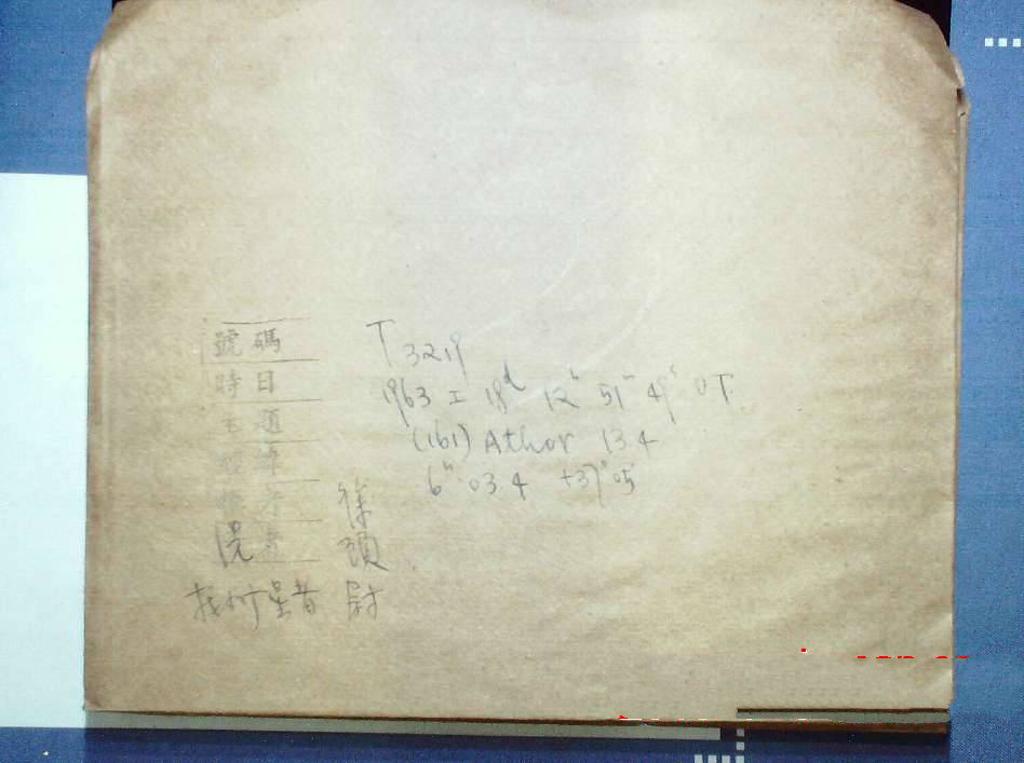 號碼 T 3219
時日 1963 I 18d 12h 51m 49s UT
主題 (161) Athor 13.4
6h 03.4 +37°05
徐
者 頭
找小行星者 尉